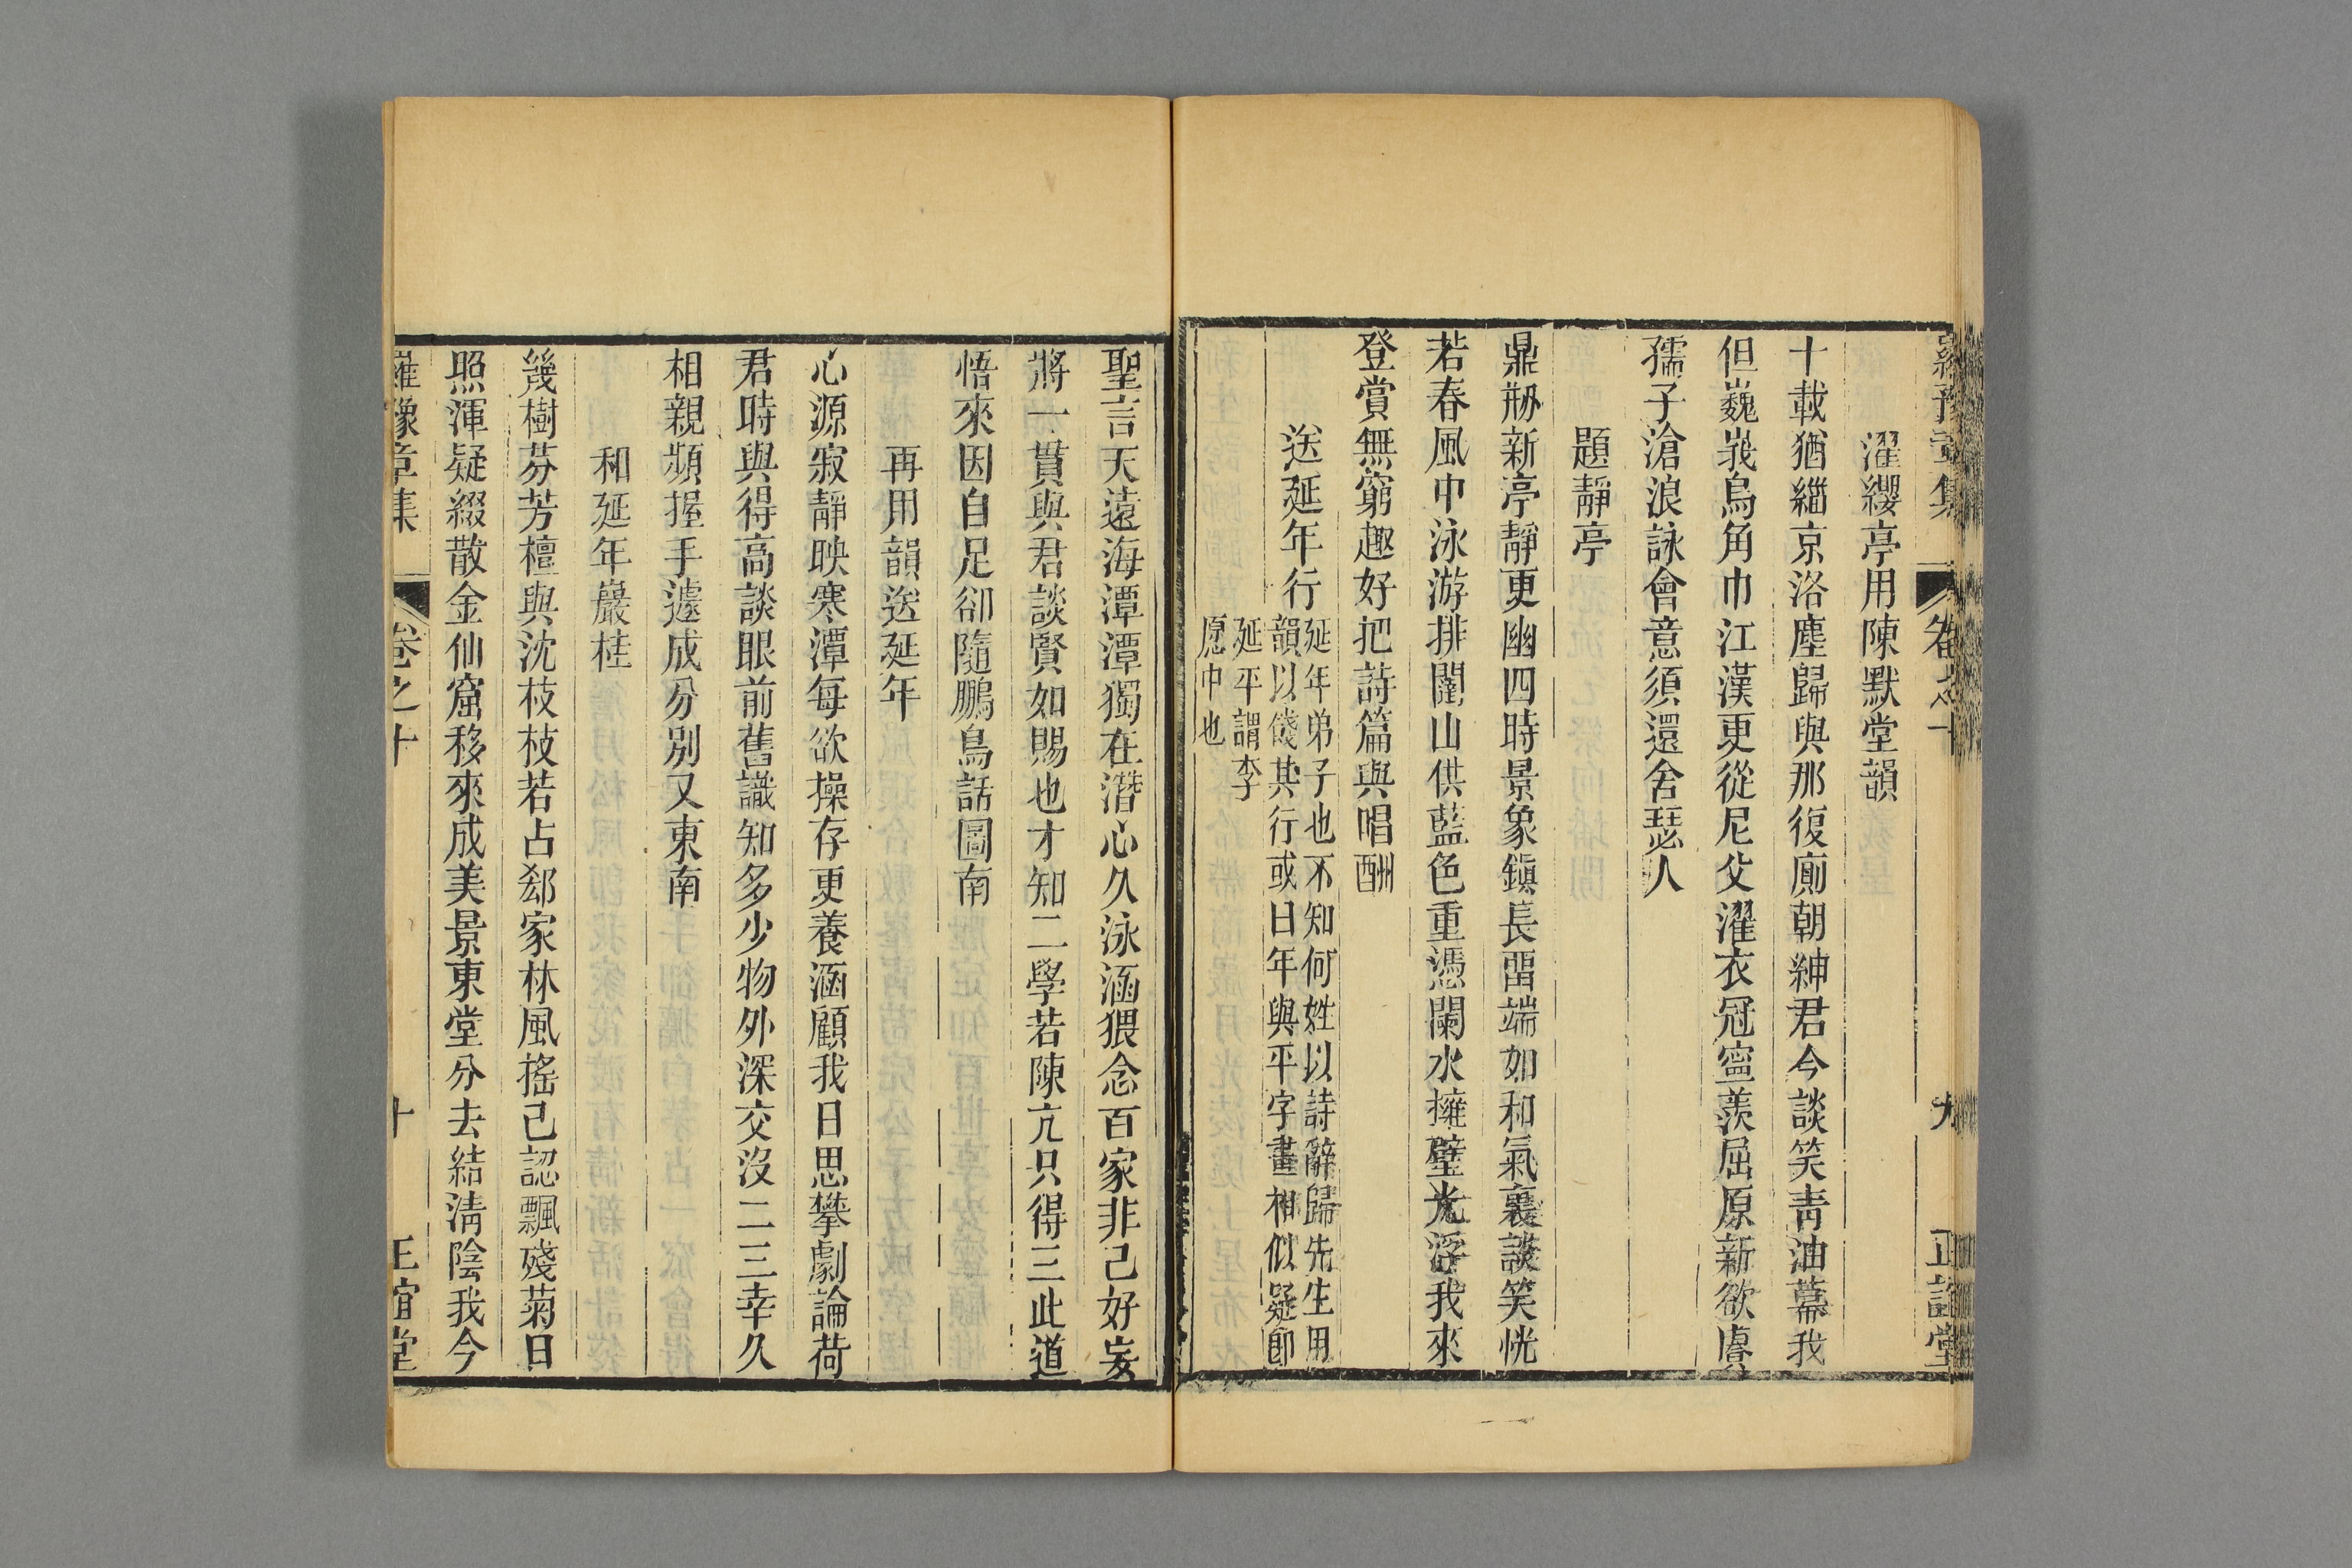 羅豫章集 卷之十 九 正誼堂
濯纓亭用陳默堂韻
十載猶緇京洛塵歸與那復廁朝紳君今談笑靑油幕我
但巍峩烏角巾江漢更從尼父濯衣冠寧羨屈原新欲賡
孺子滄浪詠會意須還舍瑟人
題靜亭
鼎剏新亭靜更幽四時景象鎭長畱端如和氣裏談笑恍
若春風中泳游排闥山供藍色重憑闌水擁璧光浮我來
登賞無窮趣好把詩篇與唱酬
送延年行延年弟子也不知何姓以詩辭歸先生用
韻以餞其行或曰年與平字畫相似疑卽
延平謂李
愿中也
聖言天遠海潭潭獨在潛心久泳涵猥念百家非己好妄
將一貫與君談賢如賜也才知二學若陳亢只得三此道
悟來因自足卻隨鵬鳥話圖南
再用韻送延年
心源寂靜映寒潭每欲操存更養涵顧我日思攀劇論荷
君時與得高談眼前舊識知多少物外深交沒二三幸久
相親頻握手遽成分別又東南
和延年巖桂
幾樹芬芳檀與沈枝枝若占郄家林風搖己認飄殘菊日
照渾疑綴散金仙窟移來成美景東堂分去結淸陰我今
羅豫章集 卷之十 十 正誼堂